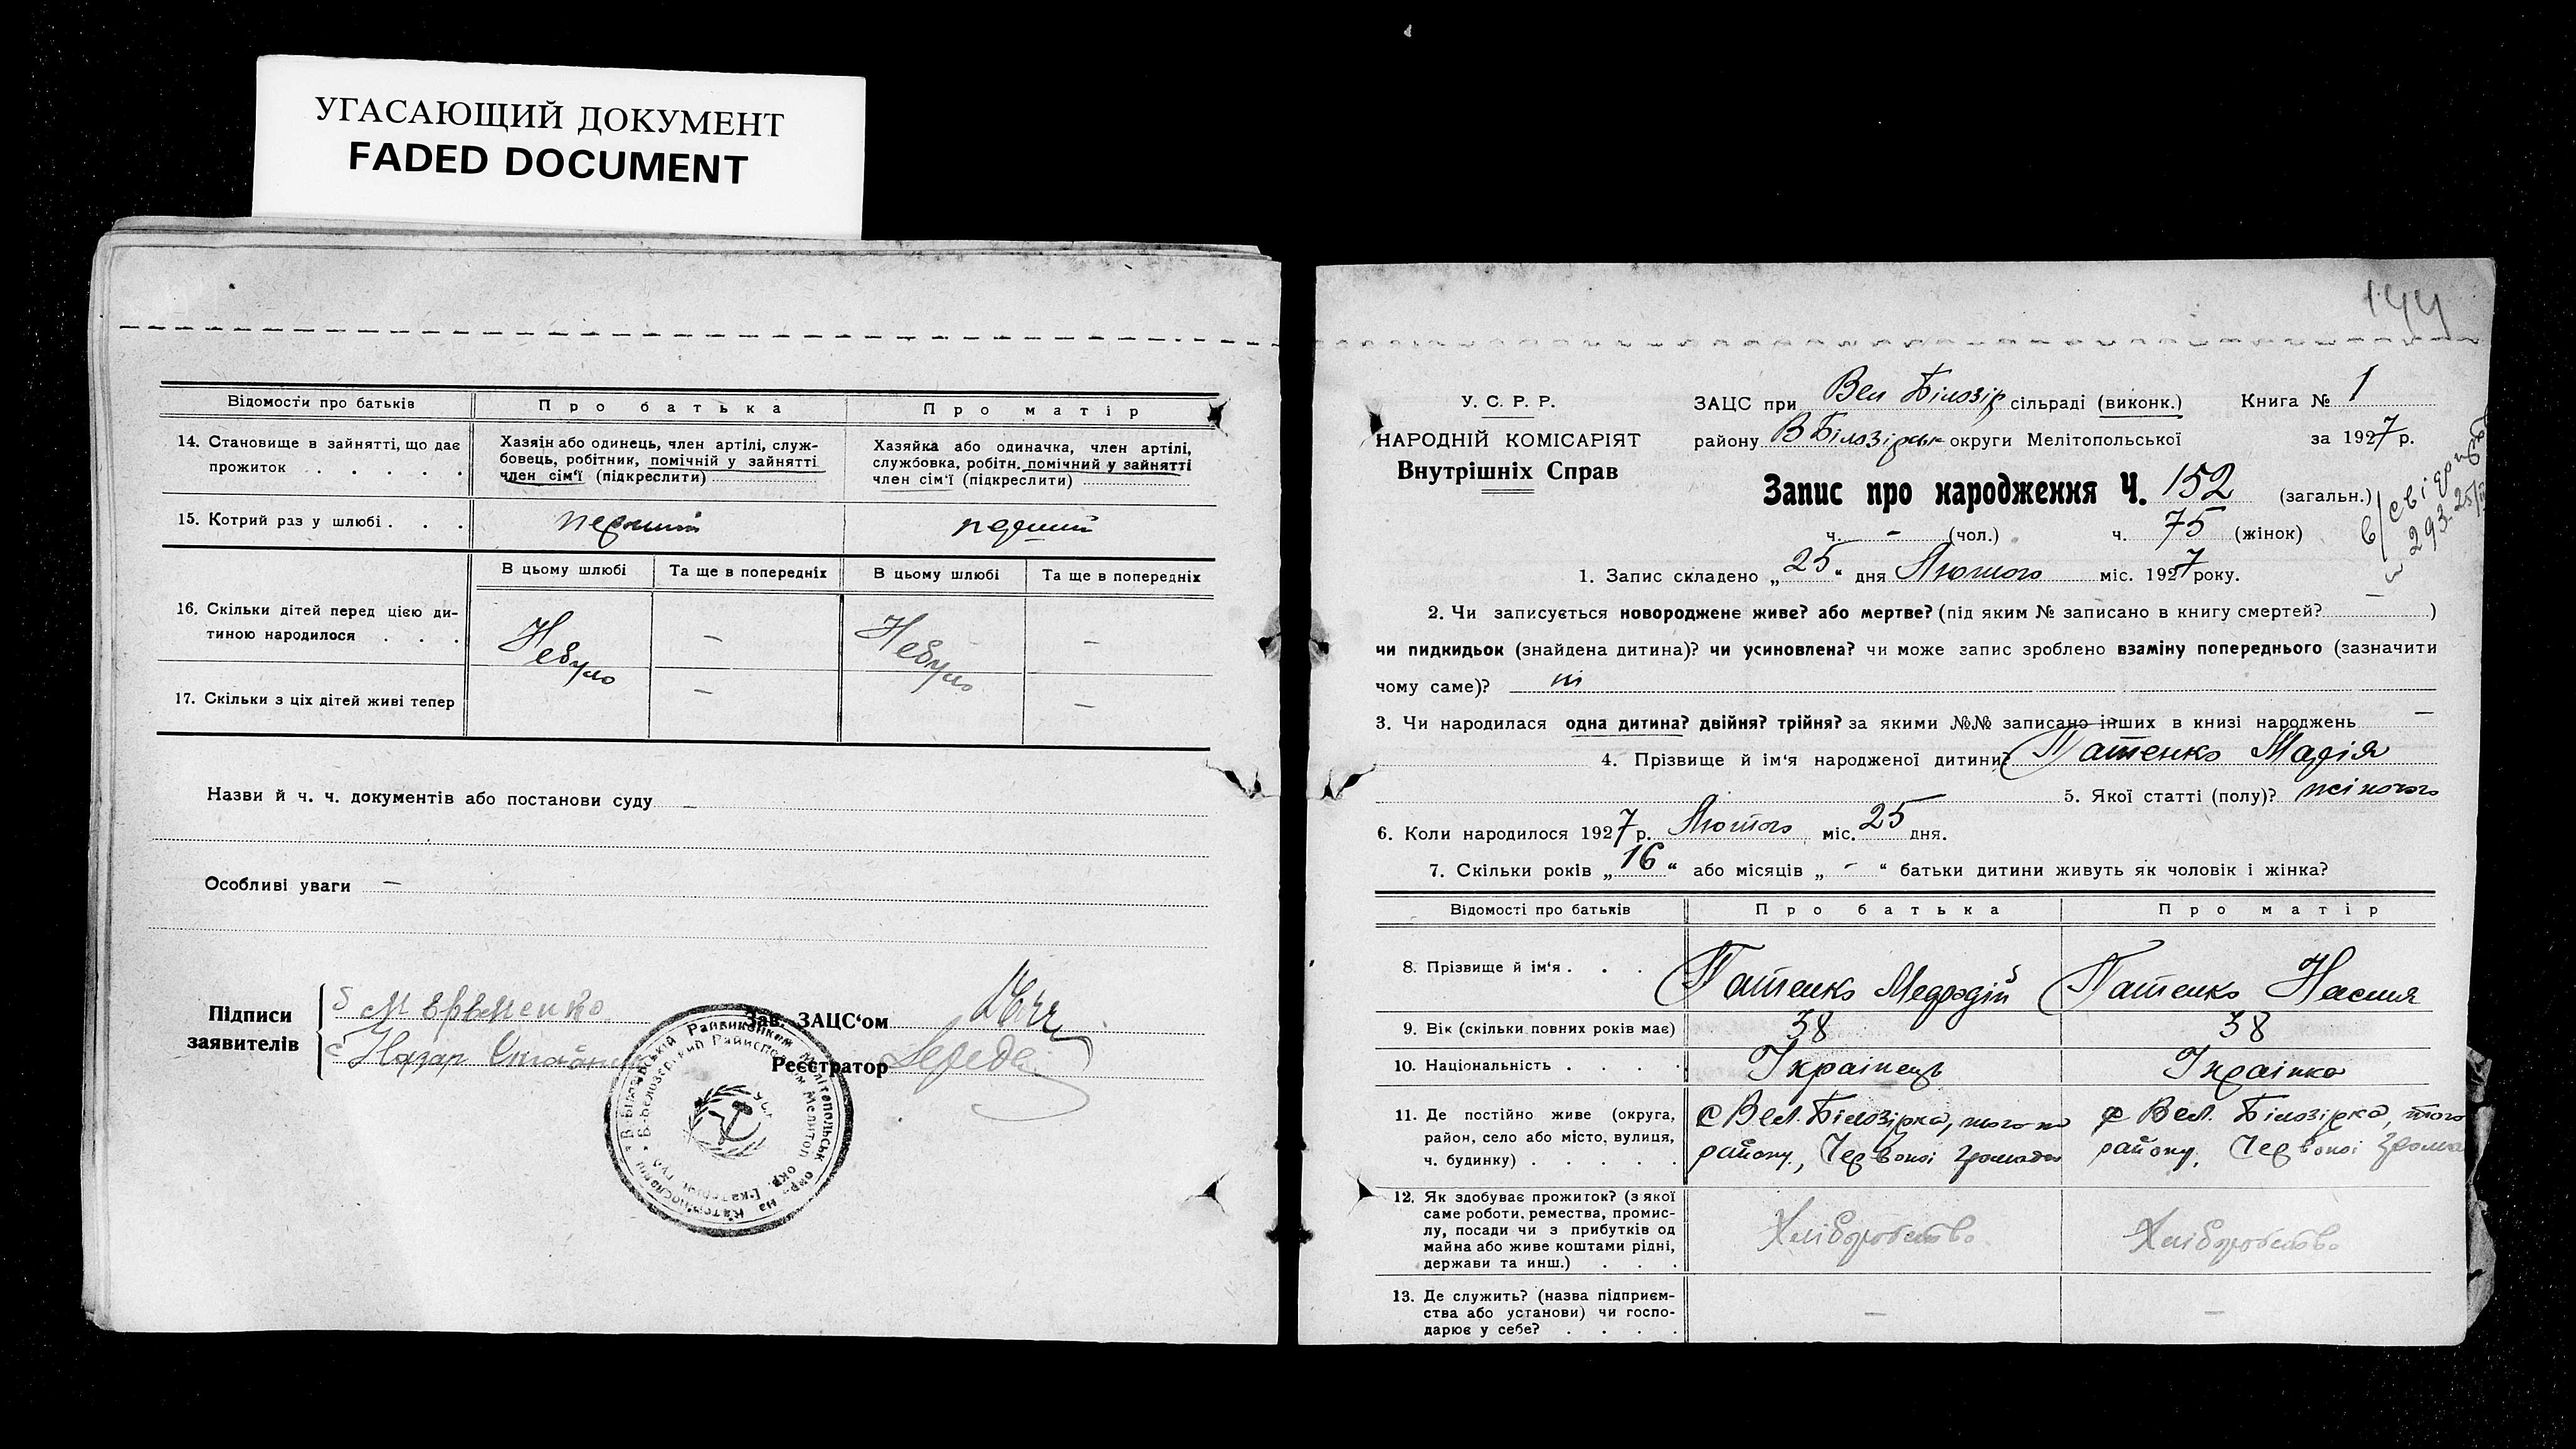 УГАСАЮЩИЙ ДОКУМЕНТ
FADED DOCUMENT
Відомости про батьків
Про батька
Про матір
14. Становище в зайнятті, що дає прожиток . . . . .
Хазяін або одинець, член артілі, служ-
бовець, робітник, помічній у зайнятті
член сім'ї (підкреслити)
Хазяйка або одиначка, член артілі,
службовка, робітн. помічний у зайнятті
член сім'ї (підкреслити)
15. Котрий раз у шлюбі . . .
перший
перший
В цьому шлюбі
Та ще в попередніх
В цьому шлюбі
Та ще в попередніх
16. Скільки дітей перед цією ди-
тиною народилося . . .
Небуло
—
Небуло
—
17. Скільки з ціх дітей живі тепер
—
—
Назви й ч. ч. документів або постанови суду —
Особливі уваги —
Підписи
заявителів
М Єременко
Назар
Зав. ЗАЦС'ом
Реєстратор
144
У. С. Р. Р.
НАРОДНІЙ КОМІСАРІЯТ
Внутрішніх Справ
ЗАЦС при Вел Білозір сільраді (виконк.)
Книга № 1
району В Білозірськ округи Мелітопольської
за 1927 р.
Запис про народження Ч. 152 (загальн.)
ч. - (чол.) ч. 75 (жінок)
293
1. Запис складено „25“ дня Лютого міс. 1927 року.
2. Чи записується новороджене живе? або мертве? (під яким № записано в книгу смертей? — )
чи пидкидьок (знайдена дитина)? чи усиновлена? чи може запис зроблено взаміну попереднього (зазначити
чому саме)? ні
3. Чи народилася одна дитина? двійня? трійня? за якими №№ записано інших в книзі народжень —
4. Прізвище й ім'я народженої дитини? Патенко Марія
5. Якої статті (полу)? жіночого
6. Коли народилося 1927 р. Лютого міс. 25 дня.
7. Скільки років „16“ або місяців „-“ батьки дитини живуть як чоловік і жінка?
Відомості про батьків
Про батька
Про матір
8. Прізвище й ім'я . . .
Патенко Мефодій
Патенко Настя
9. Вік (скільки повних років має)
38
38
10. Національність . . . .
Українець
Українка
11. Де постійно живе (округа,
район, село або місто, вулиця,
ч. будинку) . . . . .
с Вел. Білозірка, того по
району, Червоної громади
с Вел. Білозірка, того
району, Червоної грома
12. Як здобуває прожиток? (з якої
саме роботи, ремества, промис-
лу, посади чи з прибутків од
майна або живе коштами рідні,
держави та инш.) . . .
Хліборобство
Хліборобство
13. Де служить? (назва підприєм-
ства або установи) чи госпо-
дарює у себе? . . . .
—
—